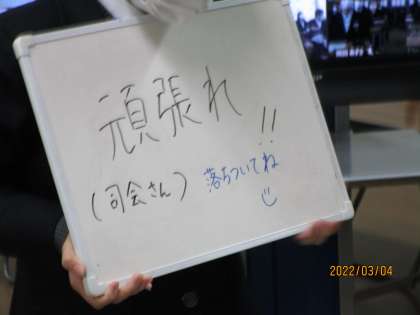 頑張れ!!
(司会さん) 落ちついてね
2022/03/04